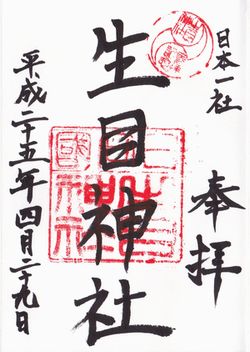 日本一社
奉拝
生目神社
平成二十五年四月二十九日